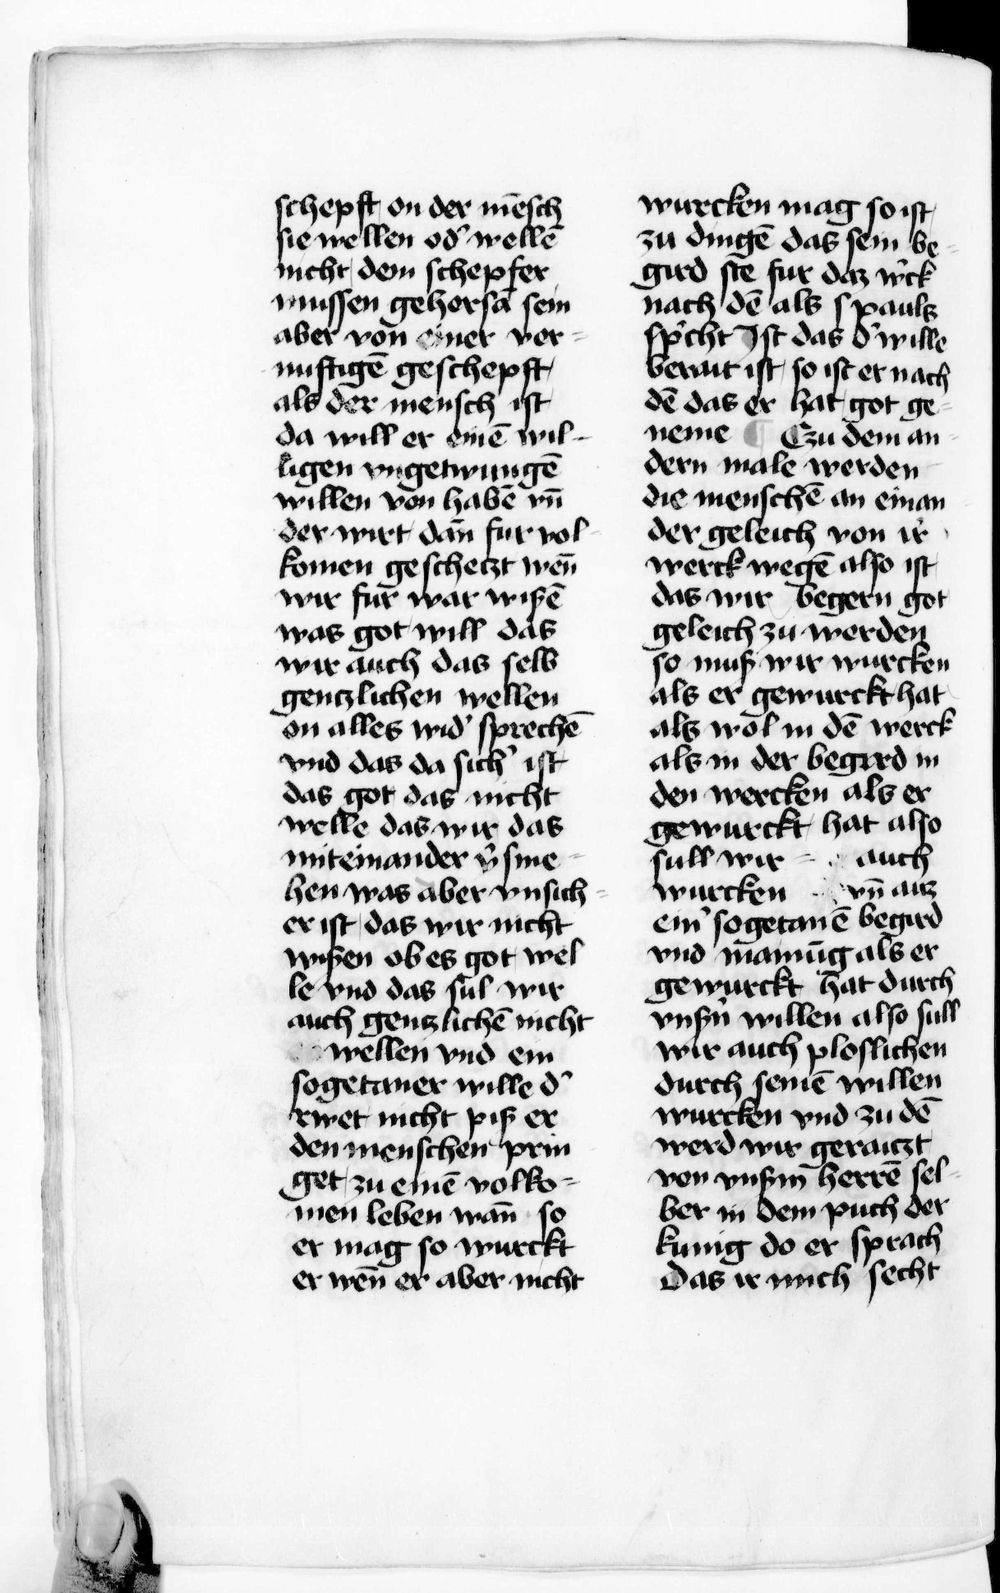 schepft on der mēsch
sie wellen od' wellē
nicht dem schepfer
mussen gehorsā sein
aber von einer ver=
nuftigē geschepft
als der mensch ist
da will er einē wil-
ligen vngetwungē
willen von habē vn̄
der wirt dan̄ fur vol-
komen geschetzt wen̄
wir fur war wißē
was got will das
wir auch das selb
gentzlichen wellen
on alles wid' sprechē
vnd das da sich' ist
das got das nicht
welle das wir das
miteinander v'sme-
hen was aber vnsich=
er ist das wir nicht
wißen ob es got wel
le vnd das sul wir
auch gentzlichē nicht
wellen vnd ein
sogetaner wille d'
rwet nicht piß er
den menschen prin
get zu einē volko=
men leben wan̄ so
er mag so wurckt
er wen̄ er aber nicht
wurcken mag so ist
zu dingē das sein be-
gird ste fur daz w'ck
nach dē als s pauls
sp'cht Ist das d' wille
berait ist so ist er nach
dē das er hat got ge-
neme ¶ Czu dem an-
dern male werden
die menschē an einan
der geleich von ir'
werck wegē also ist
das wir begern got
geleich zu werden
so muß wir wurcken
als er gewurckt hat
als wol in dē werck
als in der begird in
den wercken als er
gewurckt hat also
sull wir - auch
wurcken vn̄ auz
ein' sogetanē begird
vnd mainūg als er
gewurckt hat durch
vnßn' willen also sull
wir auch ploslichen
durch seinē willen
wurcken vnd zu dē
werd wir geraitzt
von vnßm herrē sel-
ber in dem puch der
kunig do er sprach
Das ir mich secht